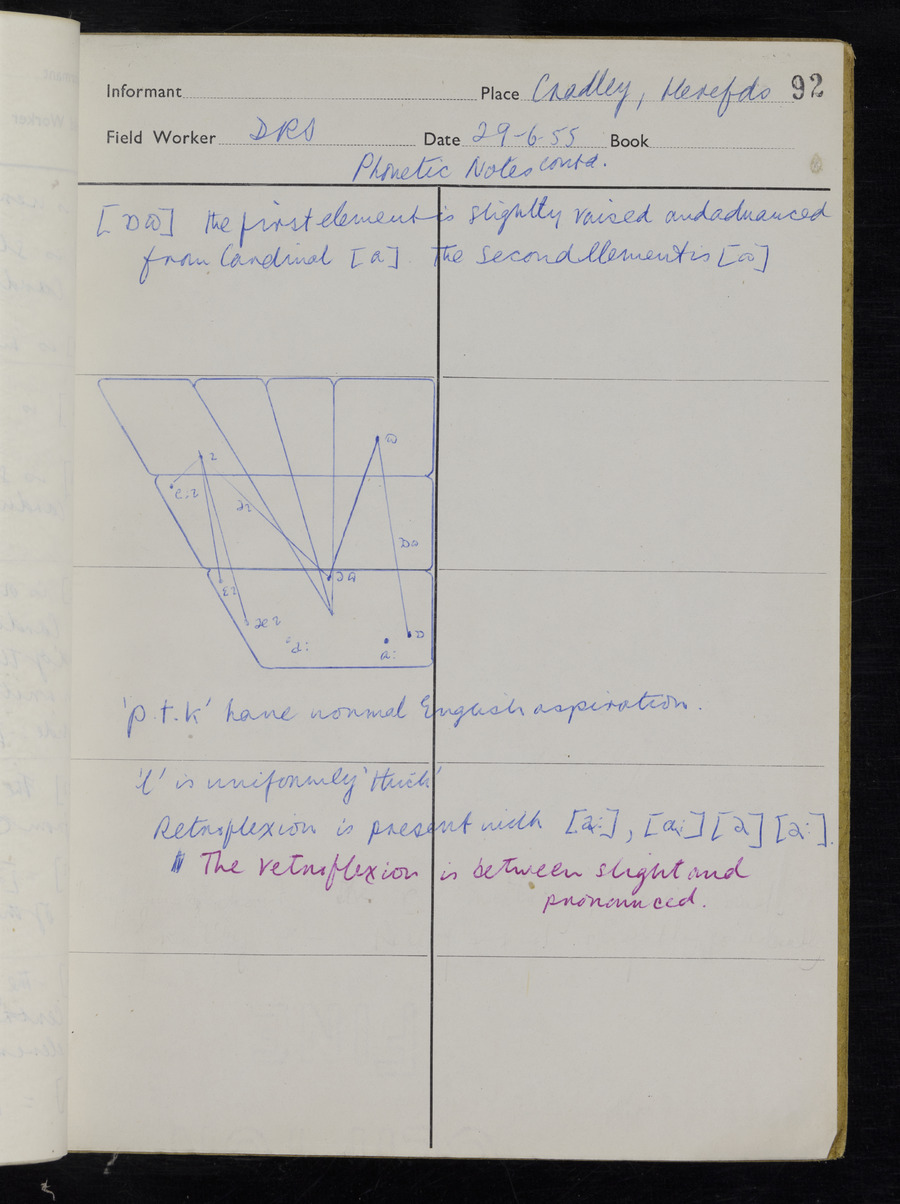 Informant Place Cradley, Herefds 92
Field Worker DRS Date 29-6-55 Book
Phonetic Notes contd.
[ɒɷ] the first element is slightly raised and advanced
from Cardinal [ɑ]. The second Element is [ɷ]
ɷ
ɒɷ
ɒ
a:
'p.t.k' have normal English aspiration.
'l' is uniformly 'thick'
Retroflexion is present with
The retroflexion is between slight and
pronounced.